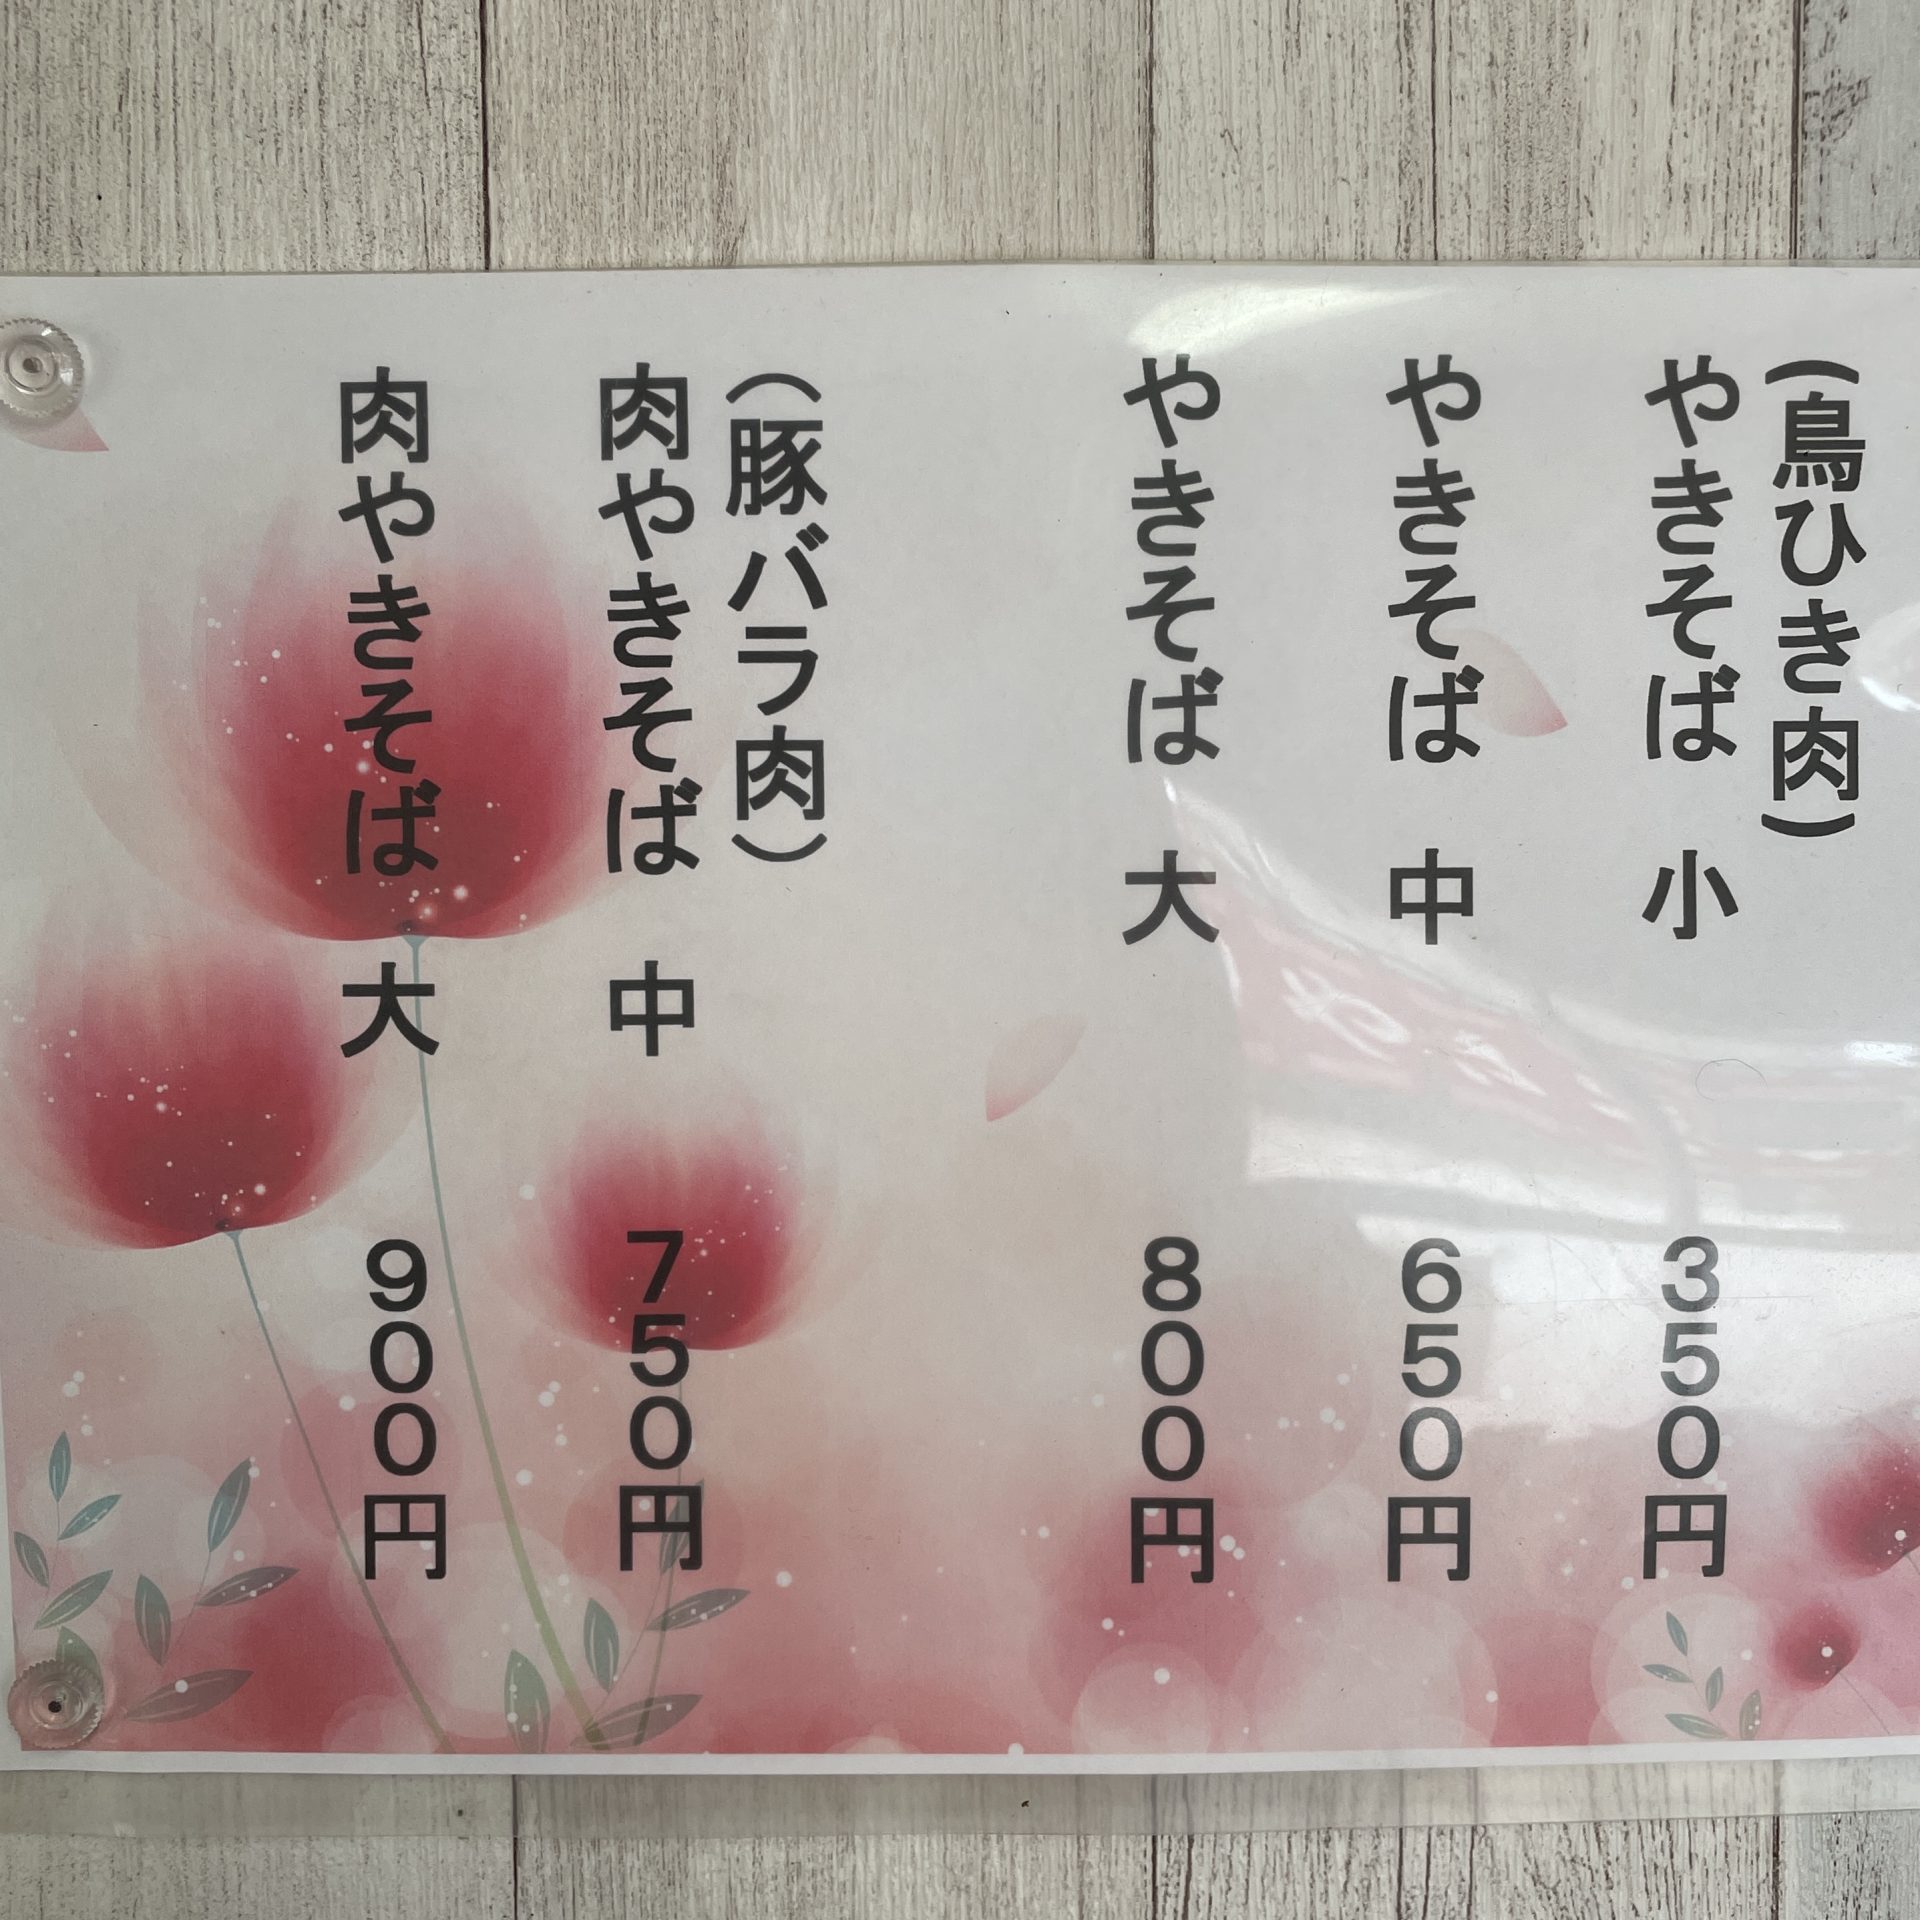 (鳥ひき肉)
やきそば 小 350円
やきそば 中 650円
やきそば 大 800円
(豚バラ肉)
肉やきそば 中 750円
肉やきそば 大 900円